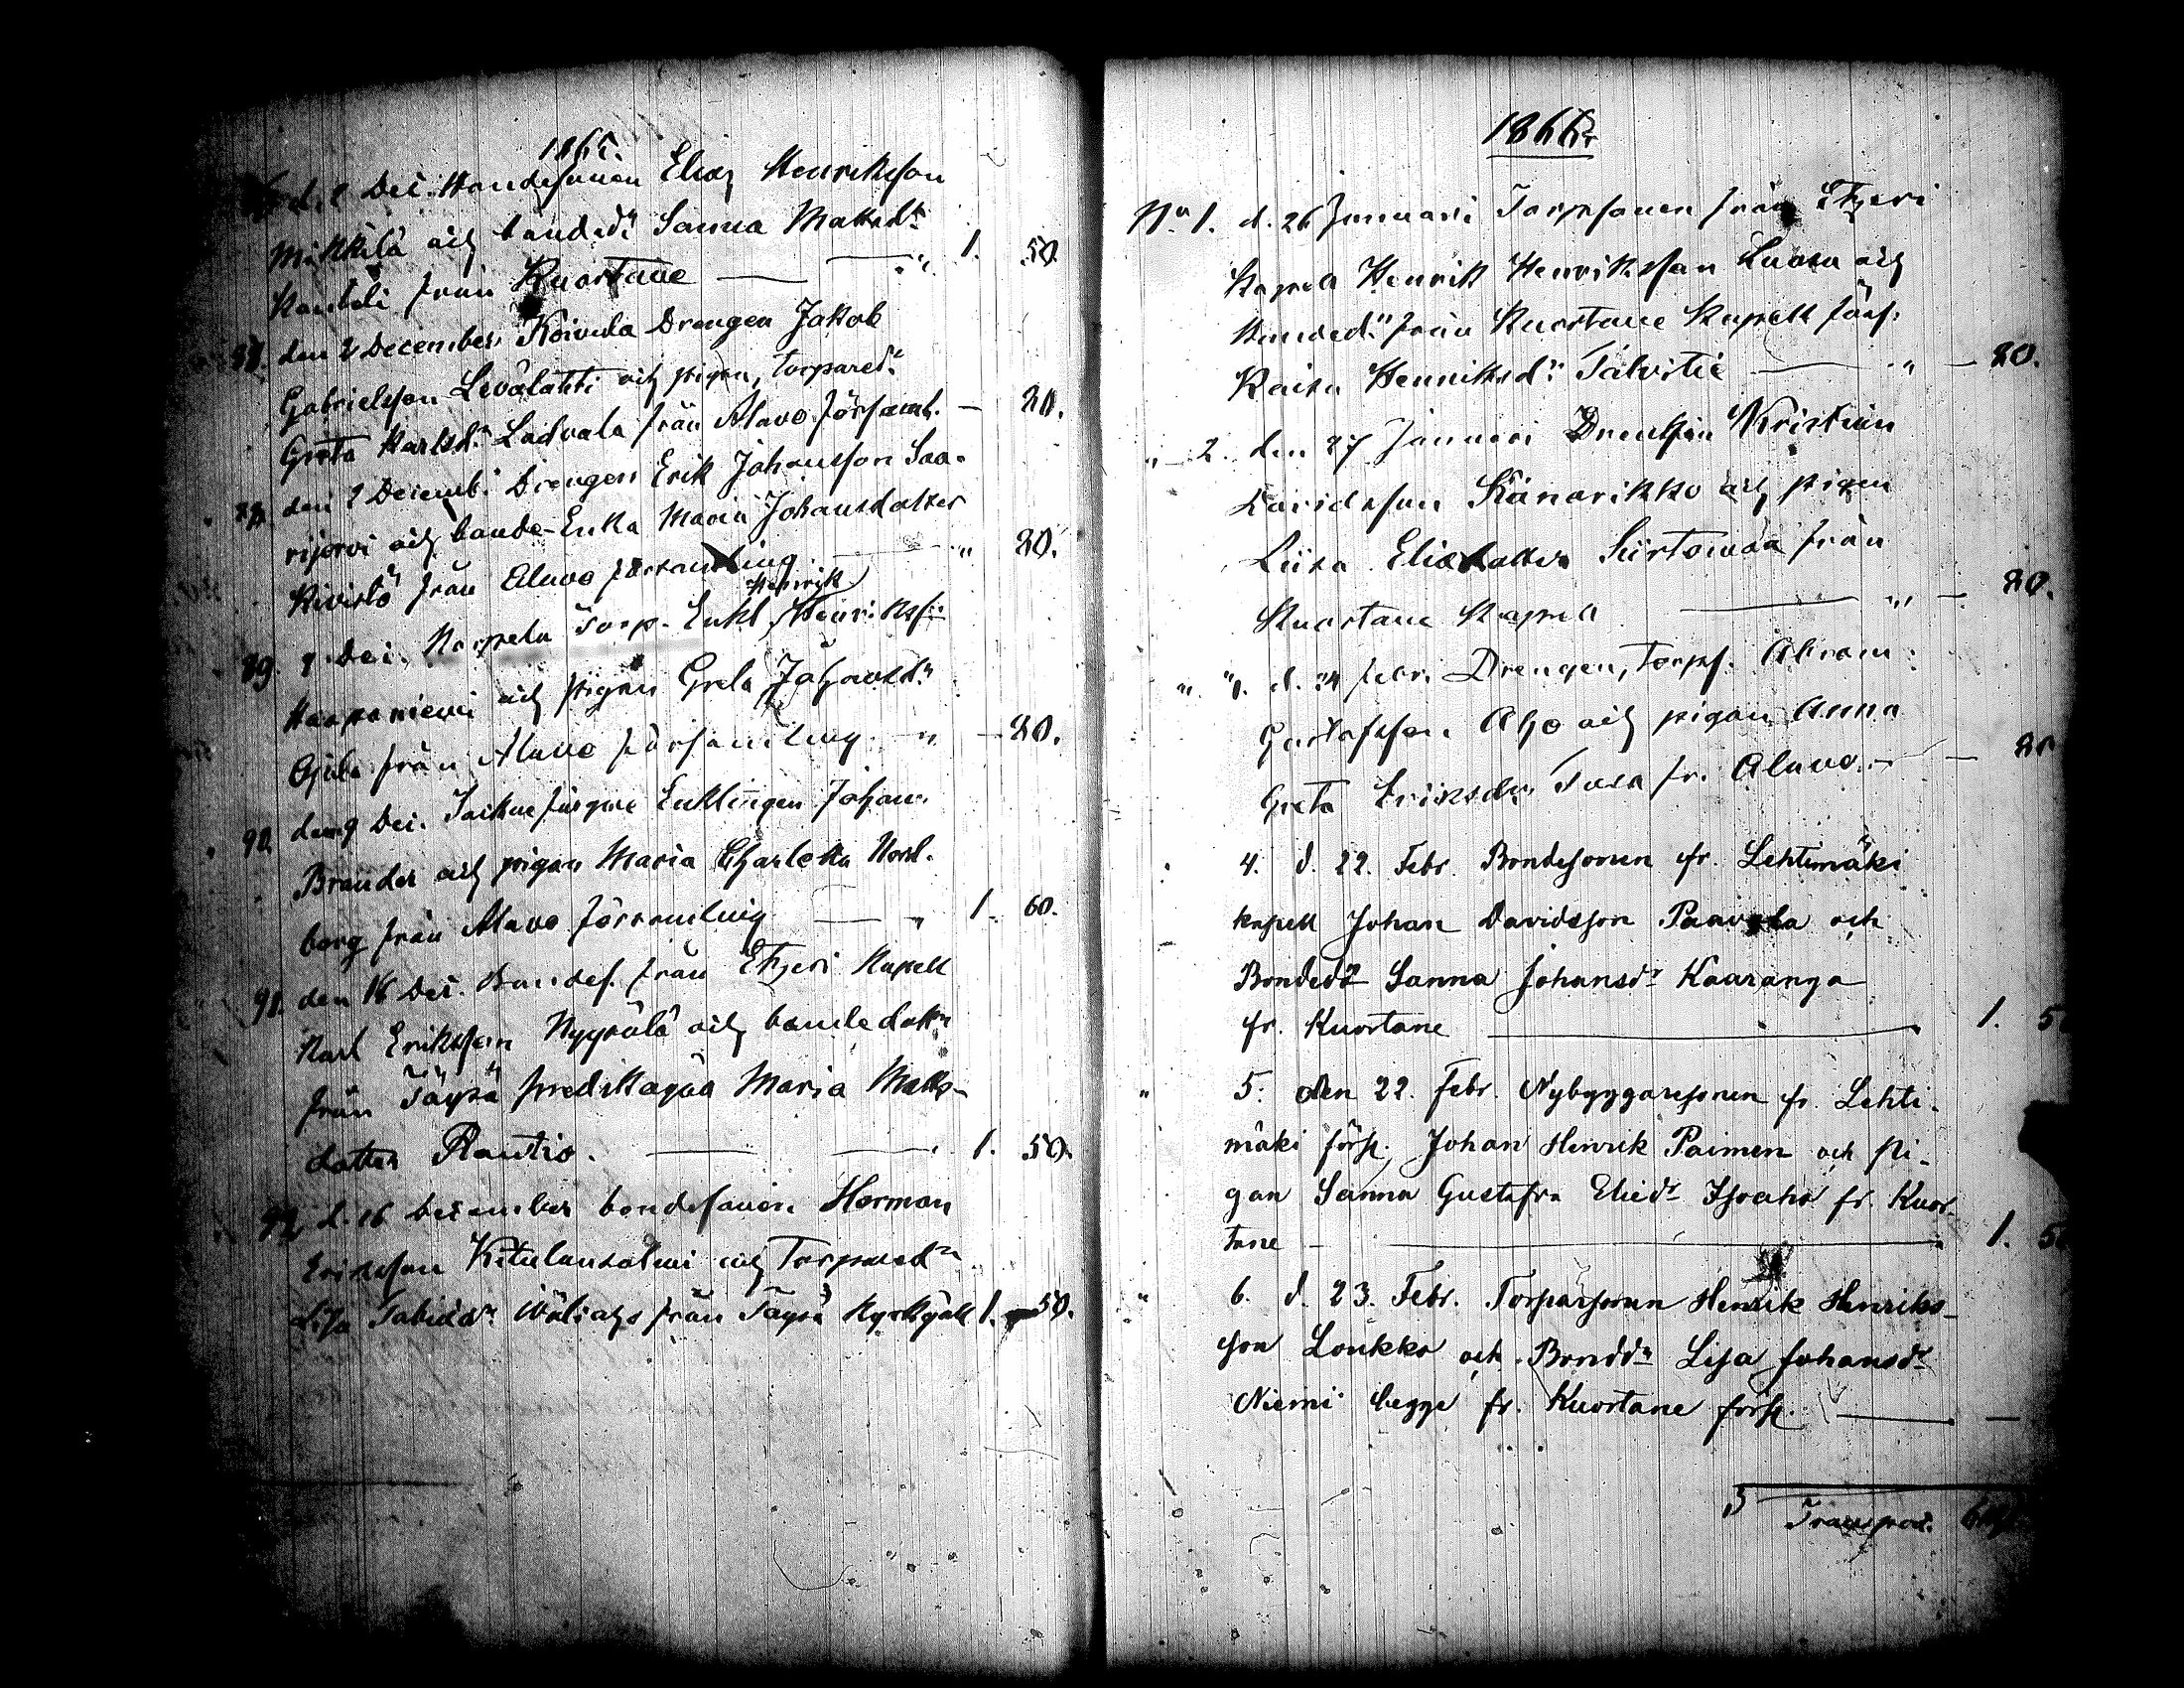 1865.
d. 2 Dec. Bondesonen Elias Henriksson
Mikkilä och bonded:r Sanna Mattsd:r
Kanteli från Kuortane — " 1. 50.
88. den 2 December Koivula Drengen Jakob
Gabrielsson Levälahti och pigan, torpared:r
Greta Karlsd:r Ladvala från Alavo församl. — 80.
den 2 Decemb. Drengen Erik Johansson Saa-
rijärvi och bonde-Enka Maria Johansdotter
Kivistö från Alavo församling — " 80.
Henrik
89. 9 Dec. Karpela Torp. Enkl. Henrikss:n
Haapaniemi och pigan Greta Johansd:r
Ojala från Alavo församling " — 80.
90. den 9 Dec. Enklingen Johan
Brander och pigan Maria Charlotta Nord-
borg från Alavo församling — " 1. 60.
91. den 16 Dec. Bondes. från Etseri Kapell
Karl Eriksson Nyypälä och bondedott:r
från Töysä predikogäll Maria Matts-
dotter Rautio. — 1. 50.
92 d. 16 december bondesonen Herman
Eriksson Kitulansalmi och Torpared:r
från Töysä 1. 50.
1866
No 1. d. 26 Januari Torpsonen från Etseri
Kapell Henrik Henriksson Luoma och
Bonded:r från Kuortane Kapell förs.
Kaisa Henriksd:r Talvitie — " — 80.
" 2. den 27 Januari Drengen Kristian
Davidsson Känarikko och pigan
Liisa Eliedotter Siirtomaa från
Kuortane Kapell — " — 80.
" 3. d. 24 febr. Drengen, Torps. Abram
Gustafsson Aho och pigan Anna
Greta Eriksd:r Tasa fr. Alavo. — — 80
4. d. 22. Febr. Bondesonen fr. Lehtimäki
kapell Johan Davidsson Paavola och
Bonded:r Sanna Johansd:r Kaaranga
fr. Kuortane — 1. 50
" 5. den 22. Febr. Nybyggaresonen fr. Lehti-
mäki förs. Johan Henrik Paimen och Pi-
gan Sanna Gustafva Elied:r Isoaho fr. Kuor-
tane — 1. 50
" 6. d. 23. Febr. Torparsonen Henrik Henriks-
son Loukko och Bondd:r Lisa Johansd:r
Niemi begge fr. Kuortane förs. — —
Transport.